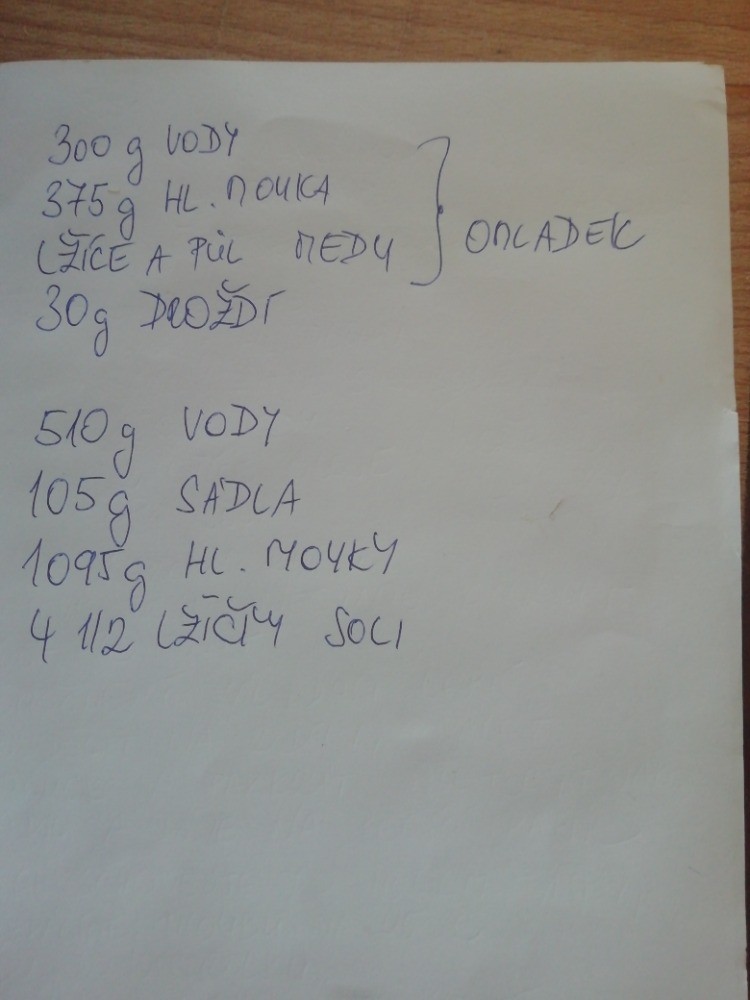 300 g VODY
375 g HL. MOUKA
LŽÍCE A PŮL MEDU
30g DROŽDÍ
OMLADEK
510 g VODY
105 g SÁDLA
1095 g HL. MOUKY
4 1/2 LŽÍČKY SOLI